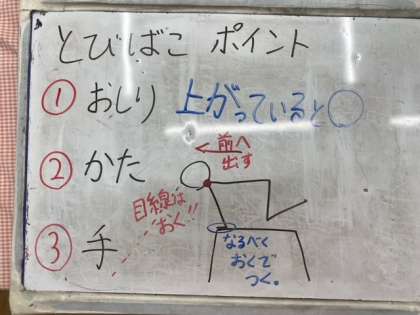 とびばこ ポイント
① おしり 上がっていると○
② かた
前へ
出す
目線は
おく!!
③ 手
なるべく
おくで
つく。